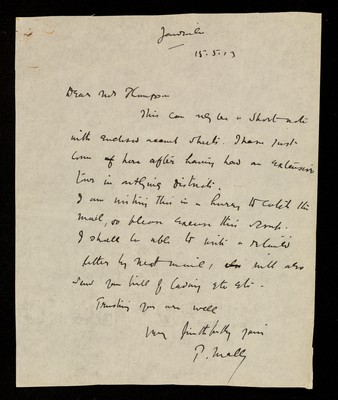 15.5.13
Dear Mr Thompson
This can only be a short note
with enclosed account sheets. I have just
come here after having had an extensive
tour in outlying districts.
I am writing this in a hurry to catch the
mail, so please excuse this scrap.
I shall be able to write a detailed
letter by next mail, will also
send you bill of lading etc etc.
Trusting you are well
Very faithfully yours